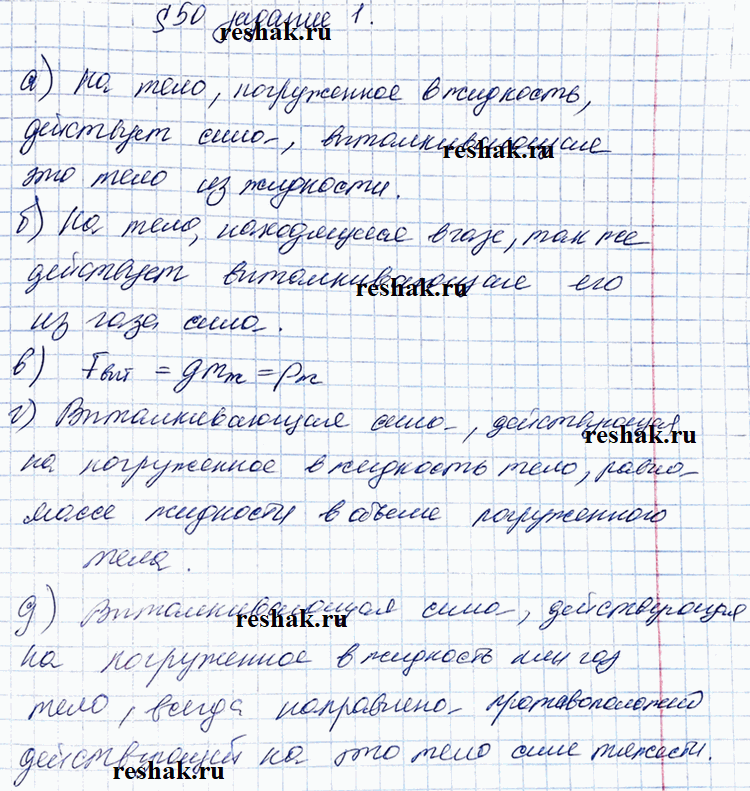 §50 задание 1.
reshak.ru
а) На тело, погруженное в жидкость,
действует сила, выталкивающая
reshak.ru
это тело из жидкости.
б) На тело, находящееся в газе, так же
действует выталкивающая его
reshak.ru
из газа сила.
в) Fвыт = gmж = Pж
г) Выталкивающая сила, действующая
reshak.ru
на погруженное в жидкость тело, равна
массе жидкости в объеме погруженного
тела.
д) Выталкивающая сила, действующая
reshak.ru
на погруженное в жидкость или газ
тело, всегда направлена противоположно
действующей на это тело силе тяжести.
reshak.ru